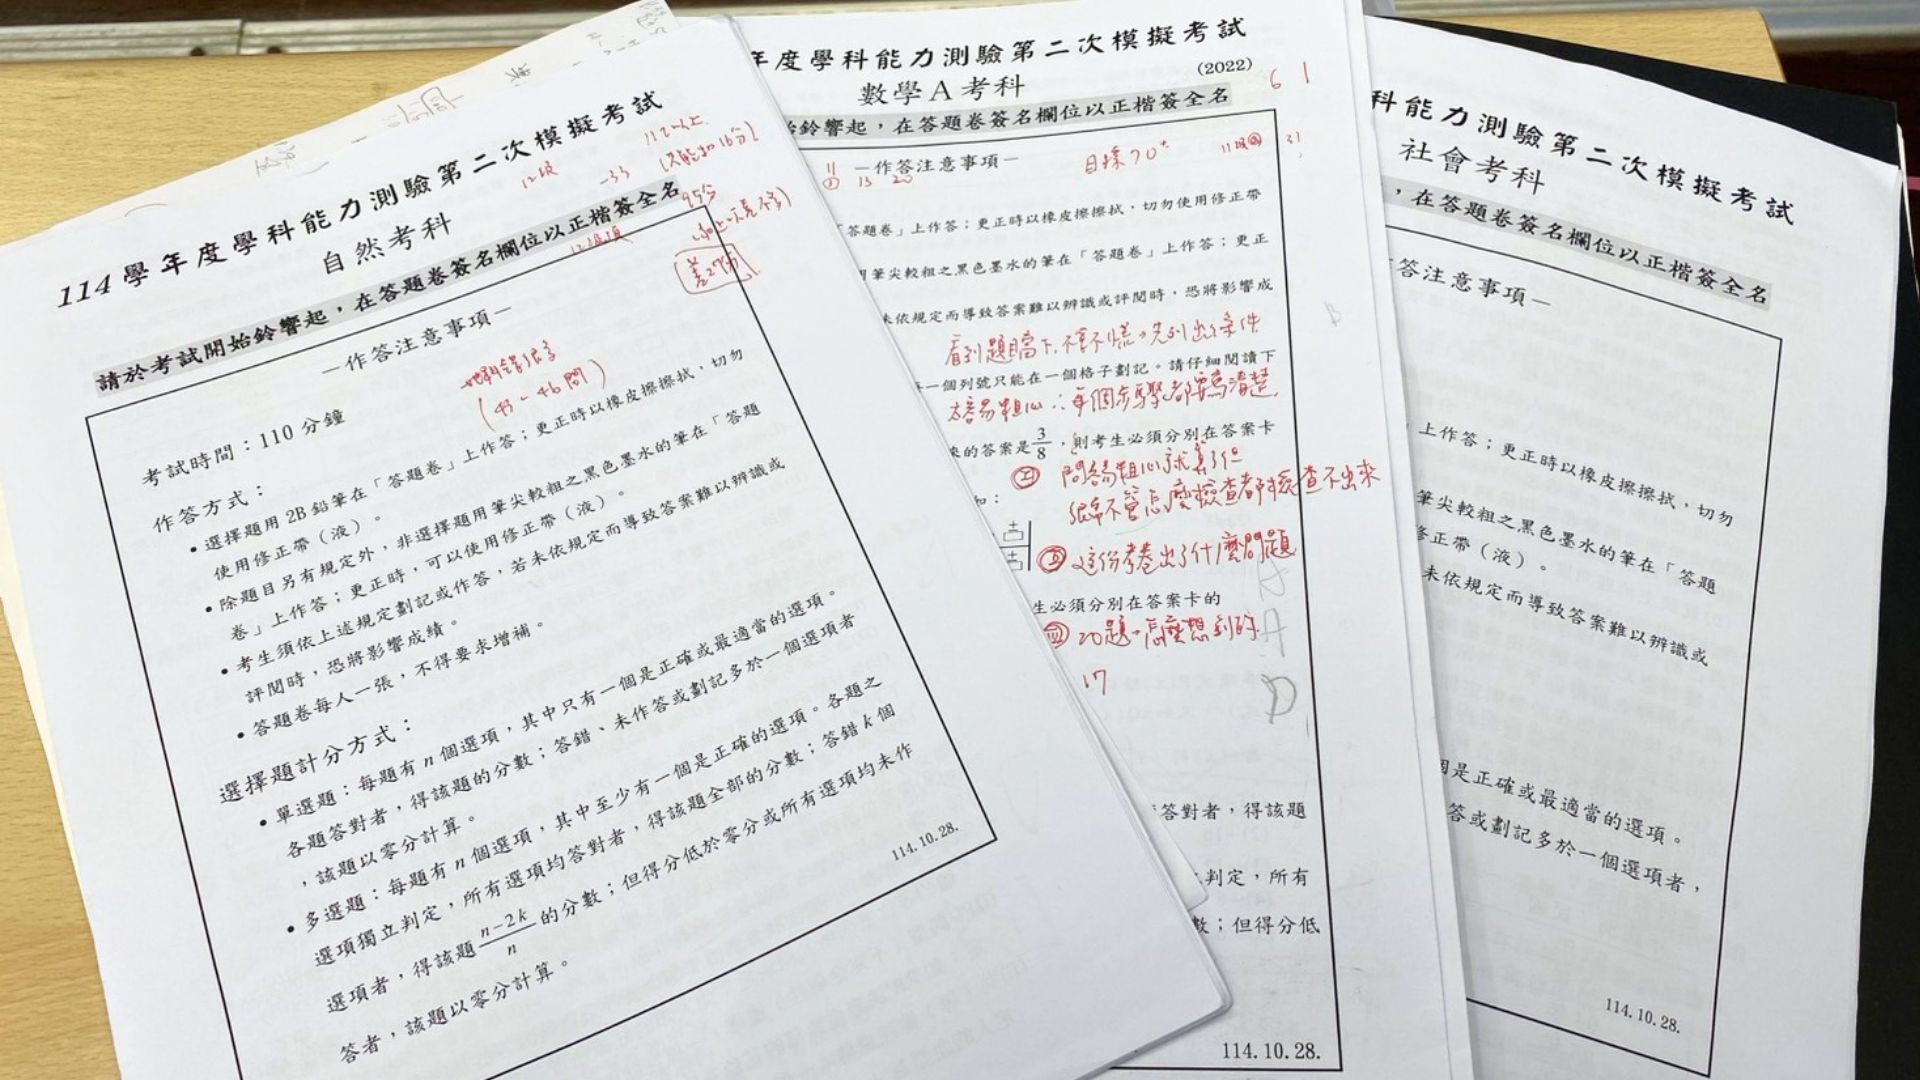 114學年度學科能力測驗第二次模擬考試
自然考科
請於考試開始鈴響起，在答題卷簽名欄位以正楷簽全名
12級
－33
112以上
(只能扣16分)
95分
差27分
－作答注意事項－
(43～46問)
考試時間：110分鐘
作答方式：
• 選擇題用2B鉛筆在「答題卷」上作答；更正時以橡皮擦擦拭，切勿
使用修正帶（液）。
• 除題目另有規定外，非選擇題用筆尖較粗之黑色墨水的筆在「答題
卷」上作答；更正時，可以使用修正帶（液）。
• 考生須依上述規定劃記或作答，若未依規定而導致答案難以辨識或
評閱時，恐將影響成績。
• 答題卷每人一張，不得要求增補。
選擇題計分方式：
• 單選題：每題有n個選項，其中只有一個是正確或最適當的選項。
各題答對者，得該題的分數；答錯、未作答或劃記多於一個選項者
，該題以零分計算。
• 多選題：每題有n個選項，其中至少有一個是正確的選項。各題之
選項獨立判定，所有選項均答對者，得該題全部的分數；答錯k個
選項者，得該題 n−2k/n 的分數；但得分低於零分或所有選項均未作
答者，該題以零分計算。
114.10.28.
年度學科能力測驗第二次模擬考試
(2022)
數學A考科
始鈴響起，在答題卷簽名欄位以正楷簽全名
6 1
－作答注意事項－
目標70+
11級
31
11
13 20
「答題卷」上作答；更正時以橡皮擦擦拭，切勿使用修正帶
筆尖較粗之黑色墨水的筆在「答題卷」上作答；更正
未依規定而導致答案難以辨識或評閱時，恐將影響成
看到題當下，不會不慌，先列出條件
一個列號只能在一個格子劃記。請仔細閱讀下
太容易粗心∴每個步驟都要寫清楚
來的答案是3/8，則考生必須分別在答案卡
問容易粗心就算了但
不管怎麼檢查都檢查不出來
如：
這份考卷出了什麼問題
生必須分別在答案卡的
20題，怎麼想到的
17
A
D
答對者，得該題
判定，所有
數；但得分低
114.10.28.
科能力測驗第二次模擬考試
社會考科
，在答題卷簽名欄位以正楷簽全名
答注意事項－
上作答；更正時以橡皮擦擦拭，切勿
筆尖較粗之黑色墨水的筆在「答題
修正帶（液）。
未依規定而導致答案難以辨識或
個是正確或最適當的選項。
答或劃記多於一個選項者，
114.10.28.